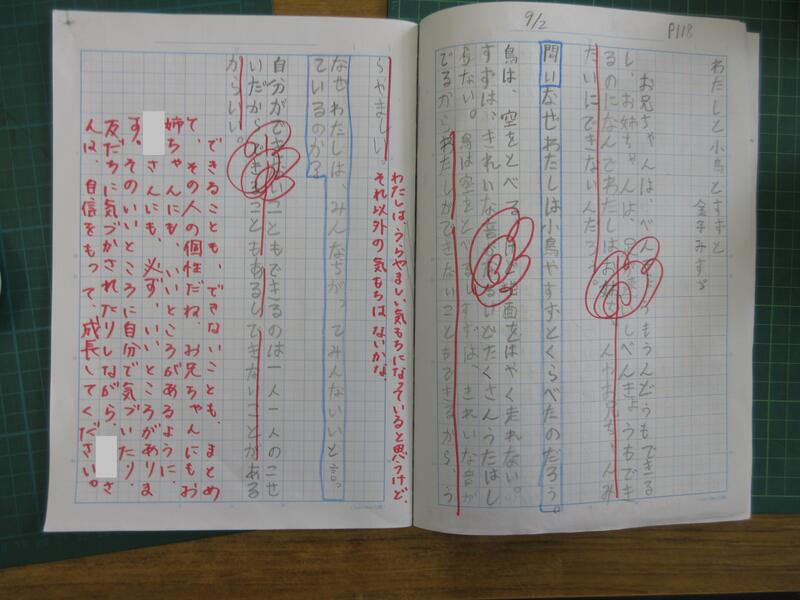 9/2
P118
わたしと小鳥とすずと
金子みすゞ
お兄ちゃんは、べんきょうもうんどうもできる
し、お姉ちゃんは、しべんきょうもでき
るのになんでわたしはお んやお兄ちゃんみ
たいにできないんだろう。
問いなぜわたしは小鳥やすずとくらべたのだろう。
鳥は、空をとべる 地面をはやく走れない。
すずは、きれいな音が るけどたくさんうたはし
らない。鳥は空をとべるしすずは、きれいな音が
でるからわたしができないこともできるから、う
らやましい。
わたしは、うらやましい気もちになっていると思うけど、
それ以外の気もちはないかな。
なぜわたしは、みんなちがってみんないいと言っ
ているのか?
自分ができないこともできるのは一人一人のこせ
いだから、できることもあるしできないことがある
からいい。
できることも、できないことも、まとめ
て、その人の個性だね。お兄ちゃんにもお
姉ちゃんにも、いいところがあるように、
さんにも、必ず、いいところがありま
す。そのいいところに自分で気づいたり、
友だちに気づかされたりしながら、 さ
んは、自信をもって、成長してください。